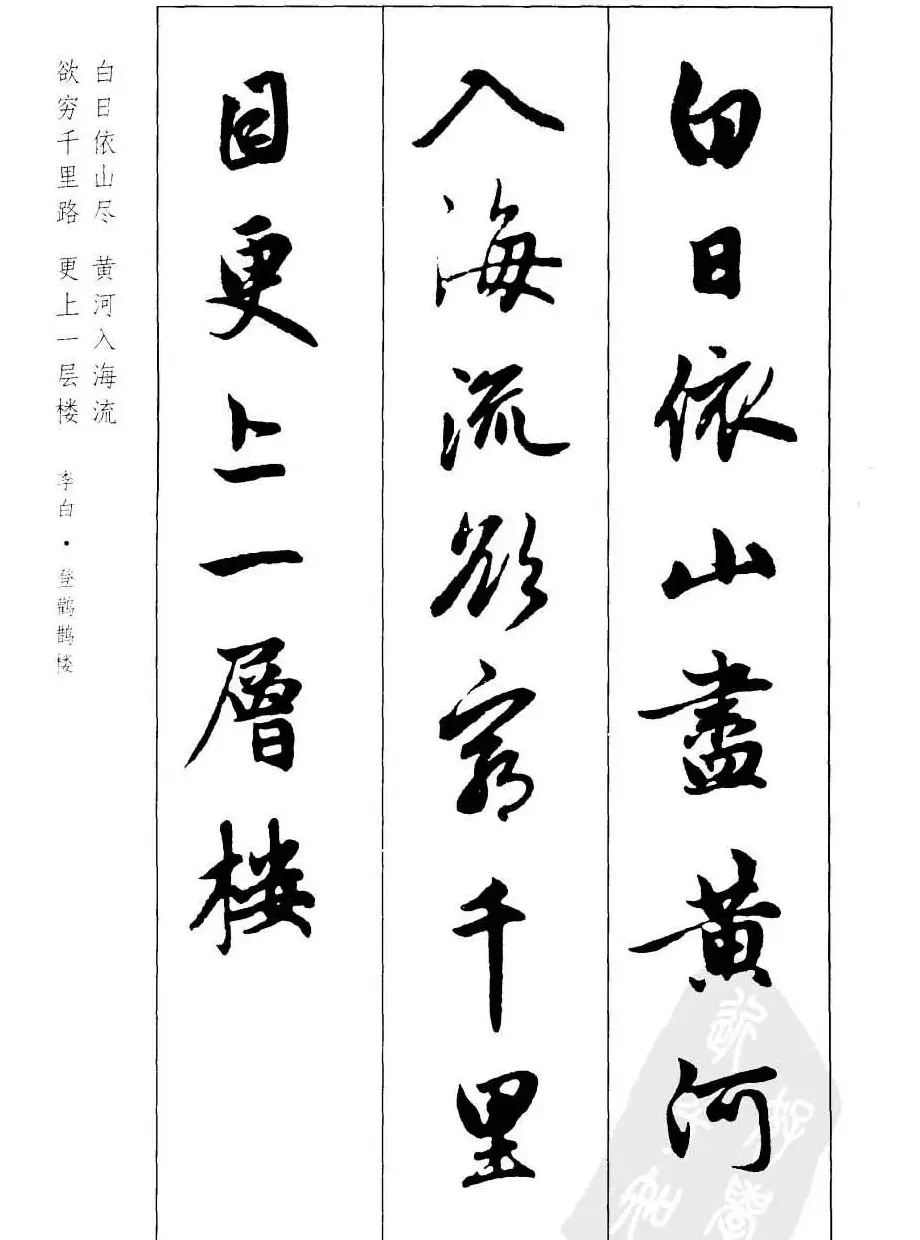 白日依山盡黄河
入海流欲窮千里
目更上一層楼
白日依山尽 黄河入海流
欲穷千里路 更上一层楼 李白·登鹳鹊楼